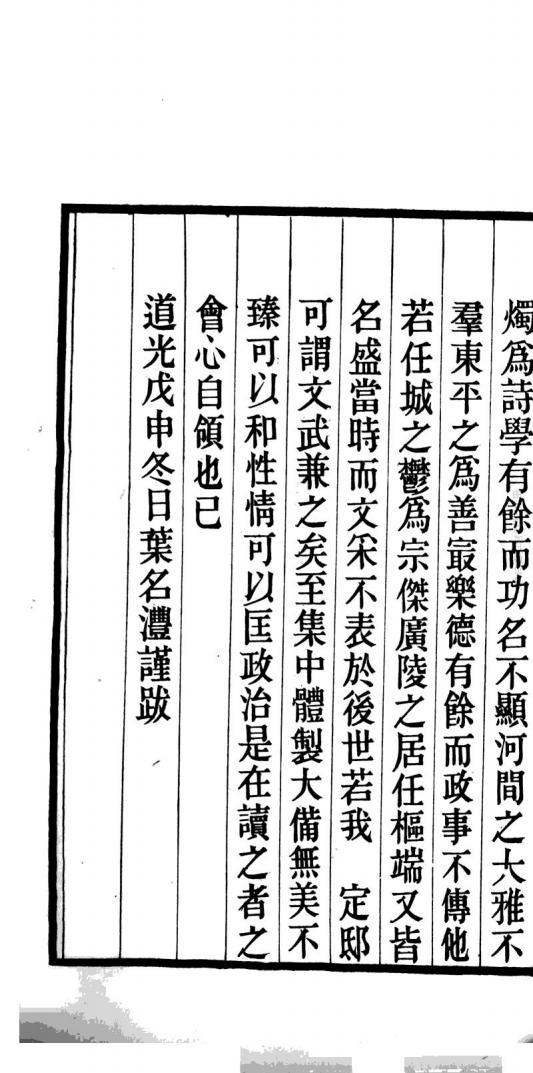 燭爲詩學有餘而功名不顯河間之大雅不
羣東平之爲善㝡樂德有餘而政事不傳他
若任城之鬱爲宗傑廣陵之居任樞端又皆
名盛當時而文采不表於後世若我　定邸
可謂文武兼之矣至集中體製大備無美不
臻可以和性情可以匡政治是在讀之者之
會心自領也已
道光戊申冬日葉名灃謹跋